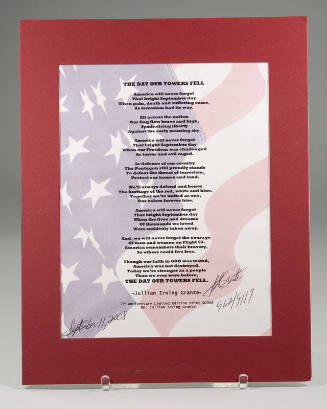 THE DAY OUR TOWERS FELL
America will never forget
That bright September day
When pain, death and suffering came,
As terrorism had its way.
All across the nation
Our flag flew brave and high,
Symbolizing liberty
Against the early morning sky.
America will never forget
That bright September day
When our Freedom was challenged
As terror and evil raged.
In defense of our country
The Pentagon still proudly stands
To defeat the threat of terrorism,
Protect our homes and land.
We'll always defend and honor
The heritage of the red, white and blue.
Together we're united as one,
Our union forever true.
America will never forget
That bright September day
When the lives and dreams
Of thousands we loved
Were suddenly taken away.
And, we will never forget the courage
Of men and women on Flight 93.
America remembers their bravery,
So others could live free.
Though our faith in GOD was tested,
America was not destroyed.
Today we're stronger as a people
Than we ever were before,
THE DAY OUR TOWERS FELL.
-Jullian Irving Grante-
7th Anniversary Limited Edition Print
By: Jullian Irving Grante
September 11, 2008